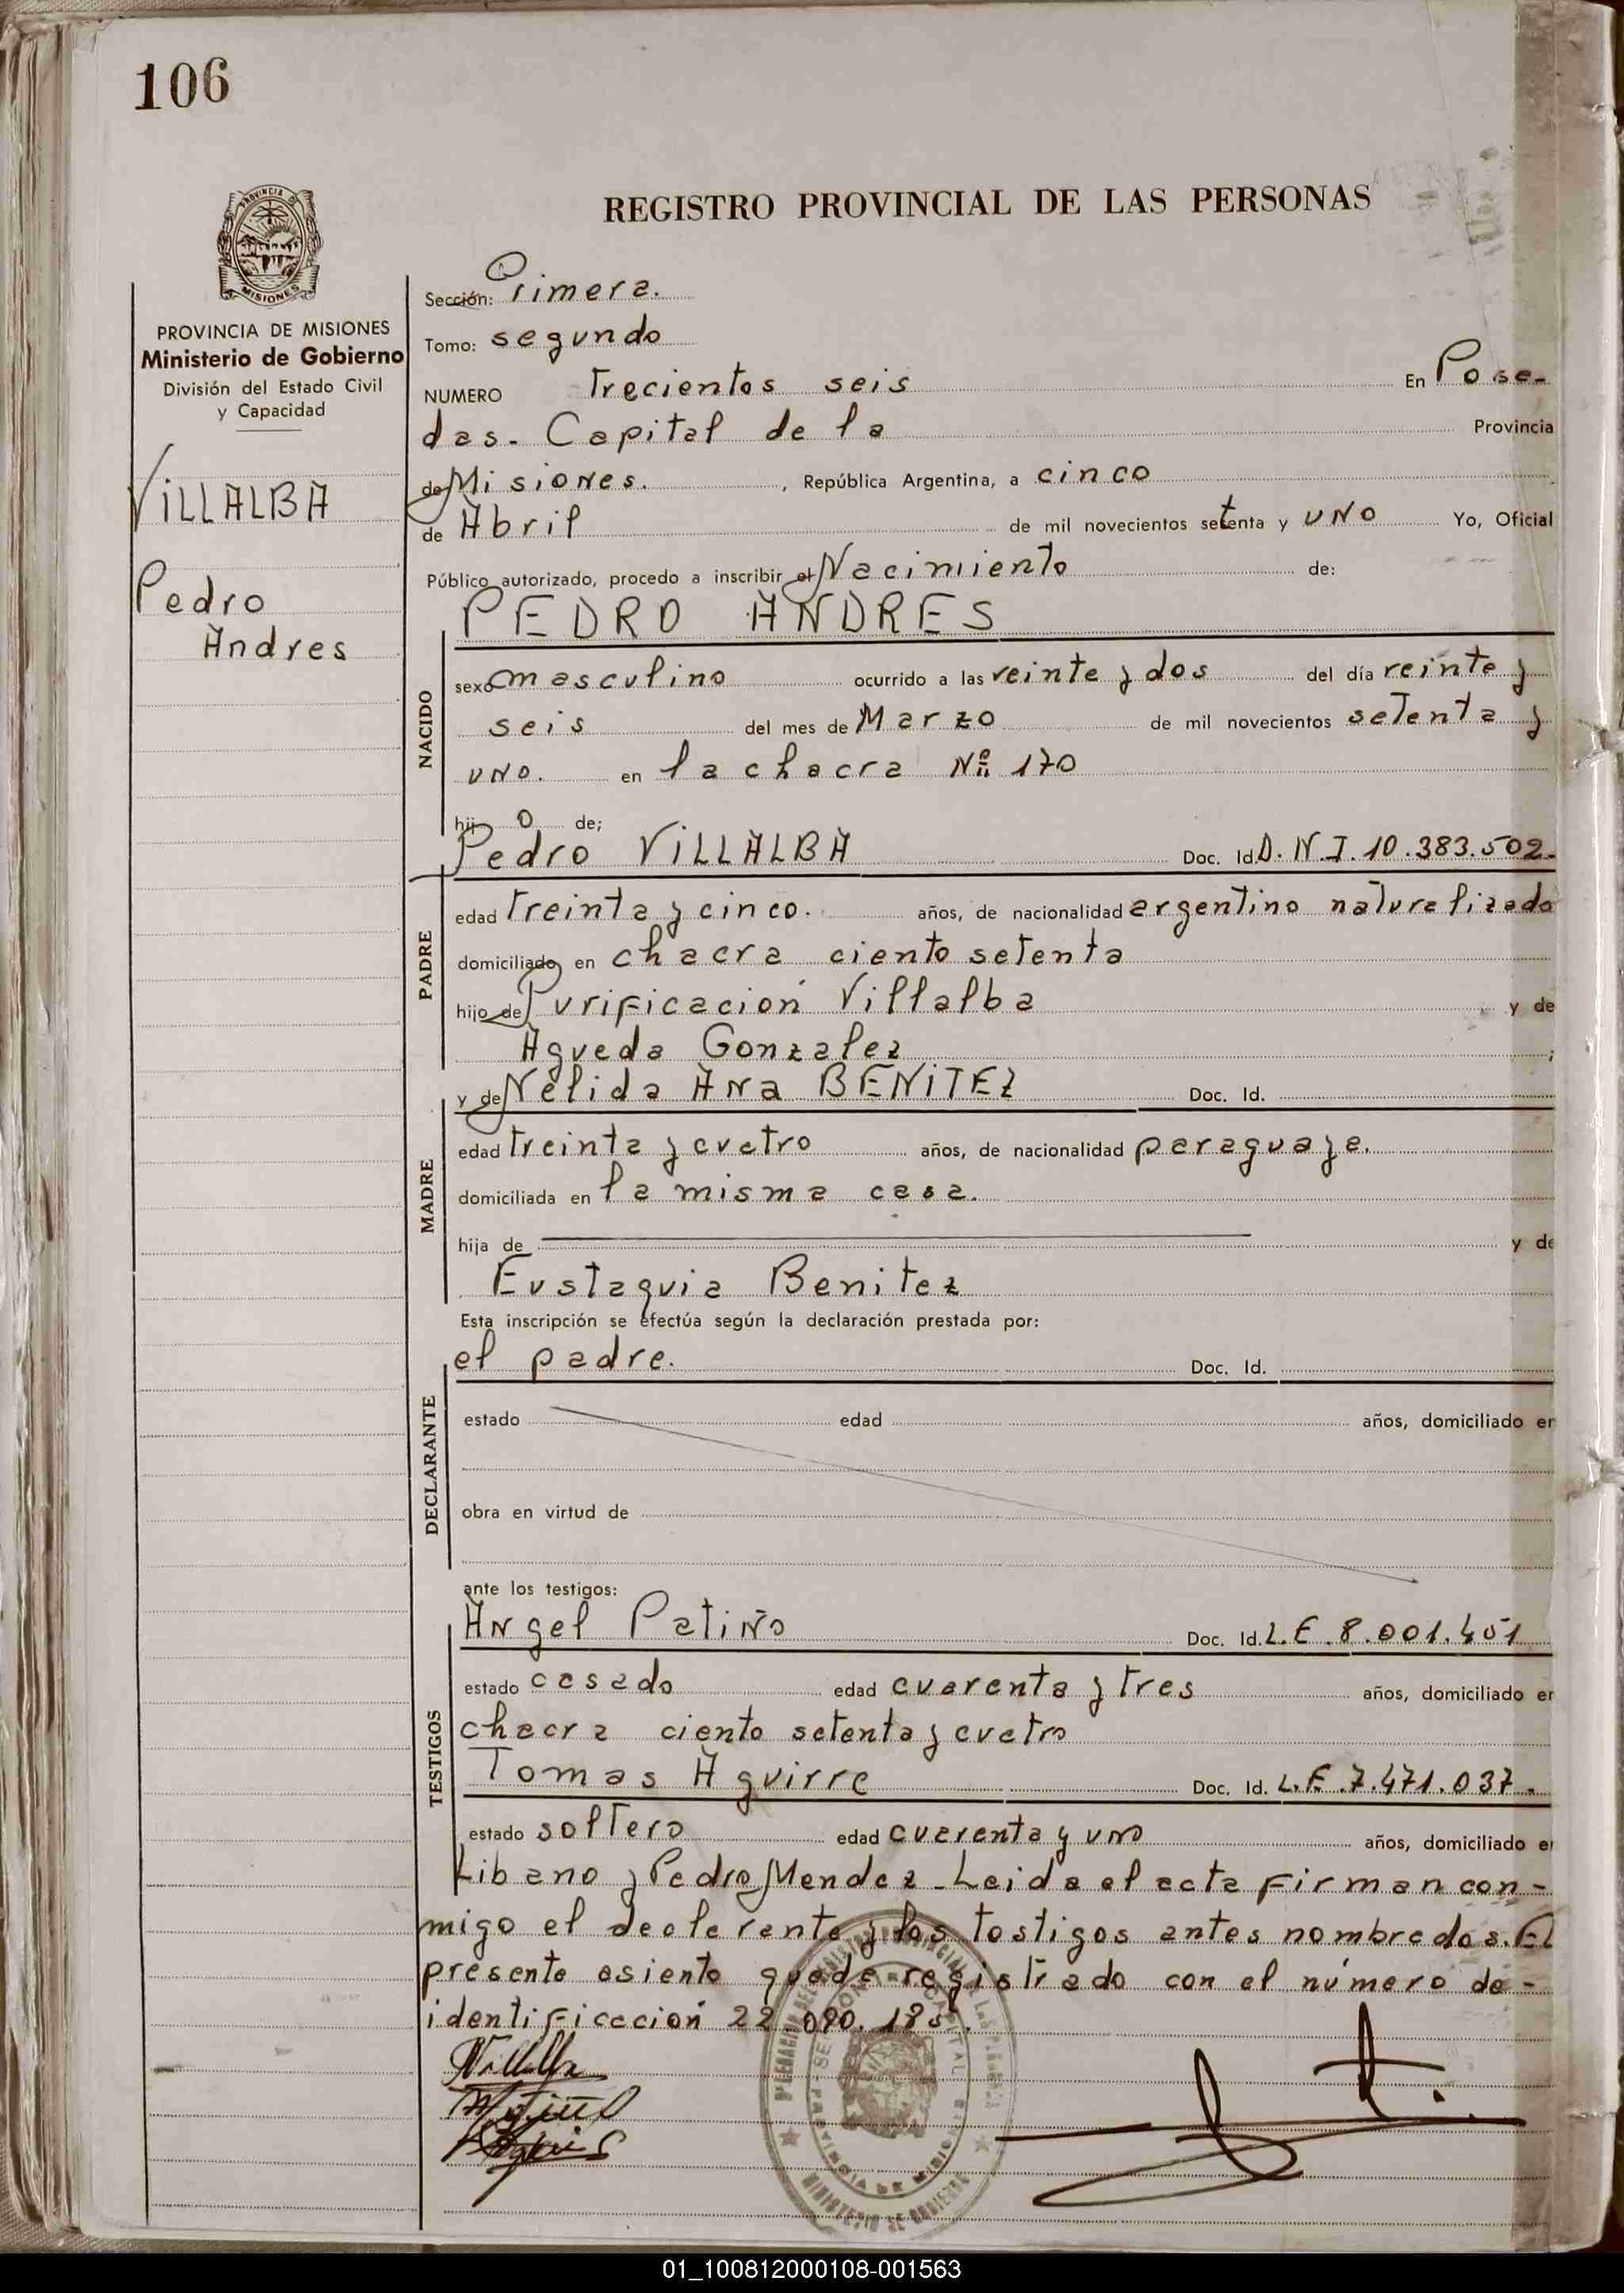 106
PROVINCIA DE
MISIONES
REGISTRO PROVINCIAL DE LAS PERSONAS
PROVINCIA DE MISIONES
Ministerio de Gobierno
División del Estado Civil
y Capacidad
VILLALBA
Pedro
Andres
Sección: Primera.
Tomo: segundo
NUMERO Trecientos seis En Posa-
das. Capital de la Provincia
de Misiones. , República Argentina, a cinco
de Abril de mil novecientos setenta y uno Yo, Oficial
Público autorizado, procedo a inscribir el Nacimiento de:
PEDRO ANDRES
NACIDO
sexo masculino ocurrido a las veinte y dos del día veinte y
seis del mes de Marzo de mil novecientos setenta y
uno. en la chacra Nº 170
hijo de;
Pedro VILLALBA Doc. Id. D.N.I. 10.383.502.
PADRE
edad treinta y cinco. años, de nacionalidad argentino naturalizado
domiciliado en chacra ciento setenta
hijo de Purificación Villalba y de
Agueda Gonzalez ;
y de Nélida Ana BENITEZ Doc. Id.
MADRE
edad treinta y cuatro años, de nacionalidad paraguaya.
domiciliada en la misma casa.
hija de y de
Eustaquia Benitez
Esta inscripción se efectúa según la declaración prestada por:
el padre. Doc. Id.
DECLARANTE
estado edad años, domiciliado en
obra en virtud de
ante los testigos:
Angel Patiño Doc. Id. L.E. 8.001.451
TESTIGOS
estado casado edad cuarenta y tres años, domiciliado en
chacra ciento setenta y cuatro
Tomas Aguirre Doc. Id. L.E. 7.471.037.
estado soltero edad cuarenta y uno años, domiciliado en
Libano y Pedro Mendez. Leida el acta firman con-
migo el declarante y los testigos antes nombrados. El
presente asiento queda registrado con el número de-
identificación 22.090.185.
Villalba
01_100812000108-001563